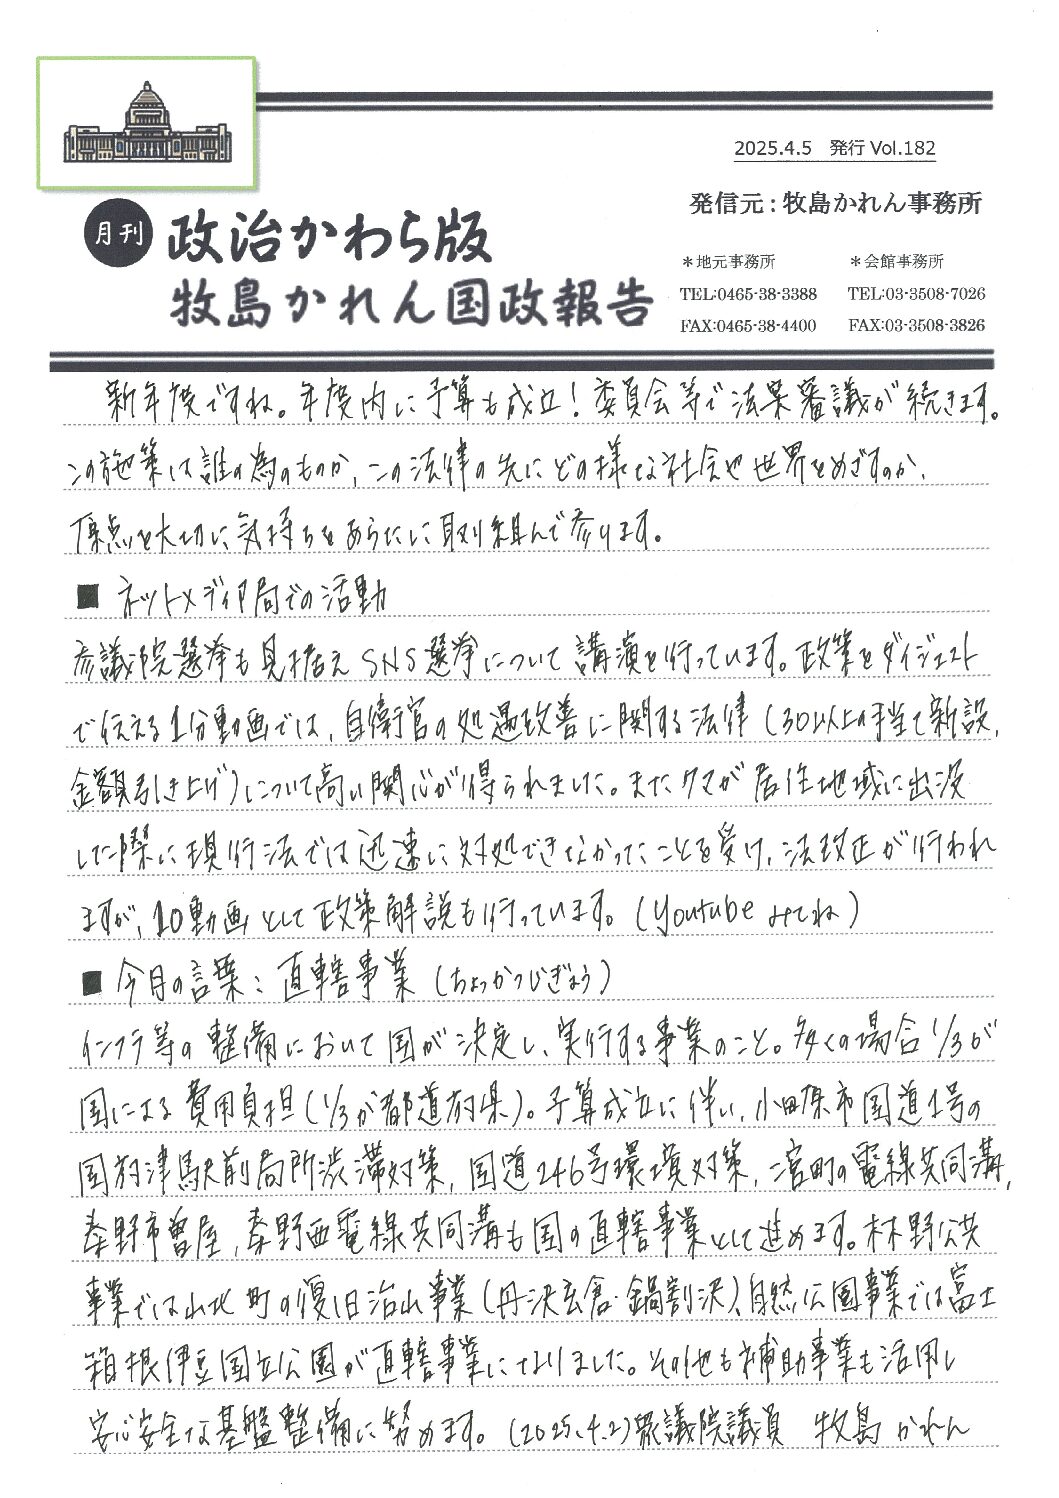 2025.4.5 発行 Vol.182
発信元:牧島かれん事務所
月刊 政治かわら版
牧島かれん国政報告
*地元事務所 *会館事務所
TEL:0465-38-3388 TEL:03-3508-7026
FAX:0465-38-4400 FAX:03-3508-3826
新年度ですね。年度内に予算も成立!委員会等で法案審議が続きます。
この施策は誰の為のものか、この法律の先にどの様な社会や世界をめざすのか、
原点を大切に気持ちをあらたに取り組んで参ります。
■ ネットメディア局での活動
参議院選挙も見据えSNS選挙について講演を行っています。政策をダイジェスト
で伝える1分動画では、自衛官の処遇改善に関する法律(30以上の手当て新設、
金額引き上げ)について高い関心が得られました。またクマが居住地域に出没
した際に現行法では迅速に対処できなかったことを受け、法改正が行われ
ますが、10動画として政策解説も行っています。(Youtubeみてね)
■ 今月の言葉:直轄事業(ちょっかつじぎょう)
インフラ等の整備において国が決定し、実行する事業のこと。多くの場合1/3が
国による費用負担(1/3が都道府県)。予算成立に伴い、小田原市国道1号の
国府津駅前局所渋滞対策、国道246号環境対策、二宮町の電線共同溝、
秦野市曽屋、秦野西電線共同溝も国の直轄事業として進めます。林野公共
事業では山北町の復旧治山事業(丹沢玄倉・鍋割沢)、自然公園事業では富士
箱根伊豆国立公園が直轄事業になりました。その他も補助事業も活用し
安心安全な基盤整備に努めます。(2025.4.2)衆議院議員 牧島かれん